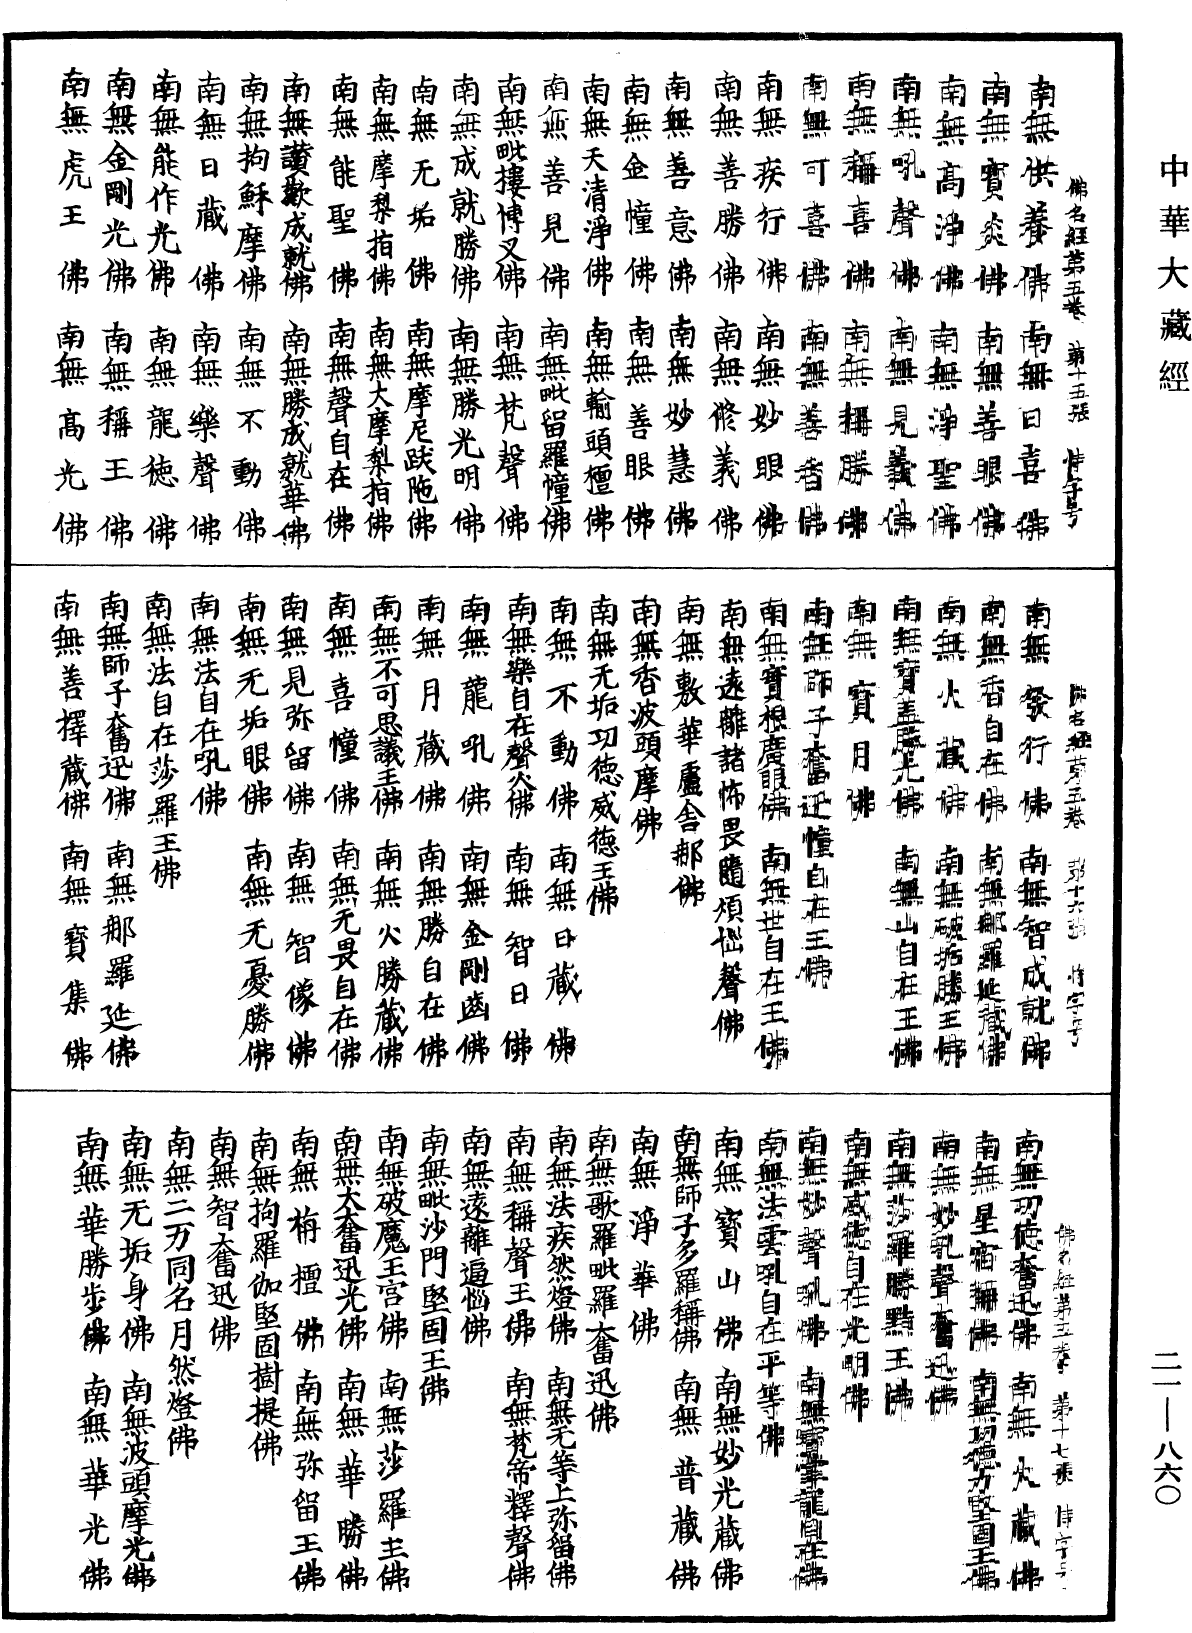 中華大藏經
佛名經第五卷 第十五張 恃字号
南無供養佛 南無日喜佛
南無寶炎佛 南無善眼佛
南無高淨佛 南無淨聖佛
南無吼聲佛 南無見義佛
南無稱喜佛 南無稱勝佛
南無可喜佛 南無善香佛
南無疾行佛 南無妙眼佛
南無善勝佛 南無修義佛
南無善意佛 南無妙慧佛
南無金幢佛 南無善眼佛
南無天清淨佛 南無輸頭檀佛
南無善見佛 南無毗留羅幢佛
南無毗摟博叉佛 南無梵聲佛
南無成就勝佛 南無勝光明佛
南無无垢佛 南無摩尼跋陁佛
南無摩梨指佛 南無大摩梨指佛
南無能聖佛 南無聲自在佛
南無讃歎成就佛 南無勝成就華佛
南無拘穌摩佛 南無不動佛
南無日藏佛 南無樂聲佛
南無能作光佛 南無龍德佛
南無金剛光佛 南無稱王佛
南無虎王佛 南無高光佛
佛名經第五卷 第十六張 恃字号
南無發行佛 南無智成就佛
南無香自在佛 南無那羅延藏佛
南無火藏佛 南無破垢勝王佛
南無寶蓋勝光佛 南無山自在王佛
南無寶月佛
南無師子奮迅幢自在王佛
南無寶根廣眼佛 南無世自在王佛
南無遠離諸怖畏隨煩惱聲佛
南無敷華盧舍那佛
南無香波頭摩佛
南無无垢功德威德王佛
南無不動佛 南無日藏佛
南無樂自在聲炎佛 南無智日佛
南無龍吼佛 南無金剛齒佛
南無月藏佛 南無勝自在佛
南無不可思議王佛 南無火勝藏佛
南無喜幢佛 南無无畏自在佛
南無見弥留佛 南無智像佛
南無无垢眼佛 南無无憂勝佛
南無法自在吼佛
南無法自在莎羅王佛
南無師子奮迅佛 南無那羅延佛
南無善擇藏佛 南無寶集佛
佛名經第五卷 第十七張 恃字号
南無功德奮迅佛 南無火藏佛
南無星宿稱佛 南無功德力堅固王佛
南無妙吼聲奮迅佛
南無莎羅勝點王佛
南無威德自在光明佛
南無妙聲吼佛 南無寶掌龍自在佛
南無法雲吼自在平等佛
南無寶山佛 南無妙光藏佛
南無師子多羅稱佛 南無普藏佛
南無淨華佛
南無歌羅毗羅奮迅佛
南無法疾然燈佛 南無无等上弥留佛
南無稱聲王佛 南無梵帝釋聲佛
南無遠離逼惱佛
南無毗沙門堅固王佛
南無破魔王宮佛 南無莎羅主佛
南無大奮迅光佛 南無華勝佛
南無栴檀佛 南無弥留王佛
南無拘羅伽堅固樹提佛
南無智奮迅佛
南無二万同名月然燈佛
南無无垢身佛 南無波頭摩光佛
南無華勝步佛 南無華光佛
二一—八六〇